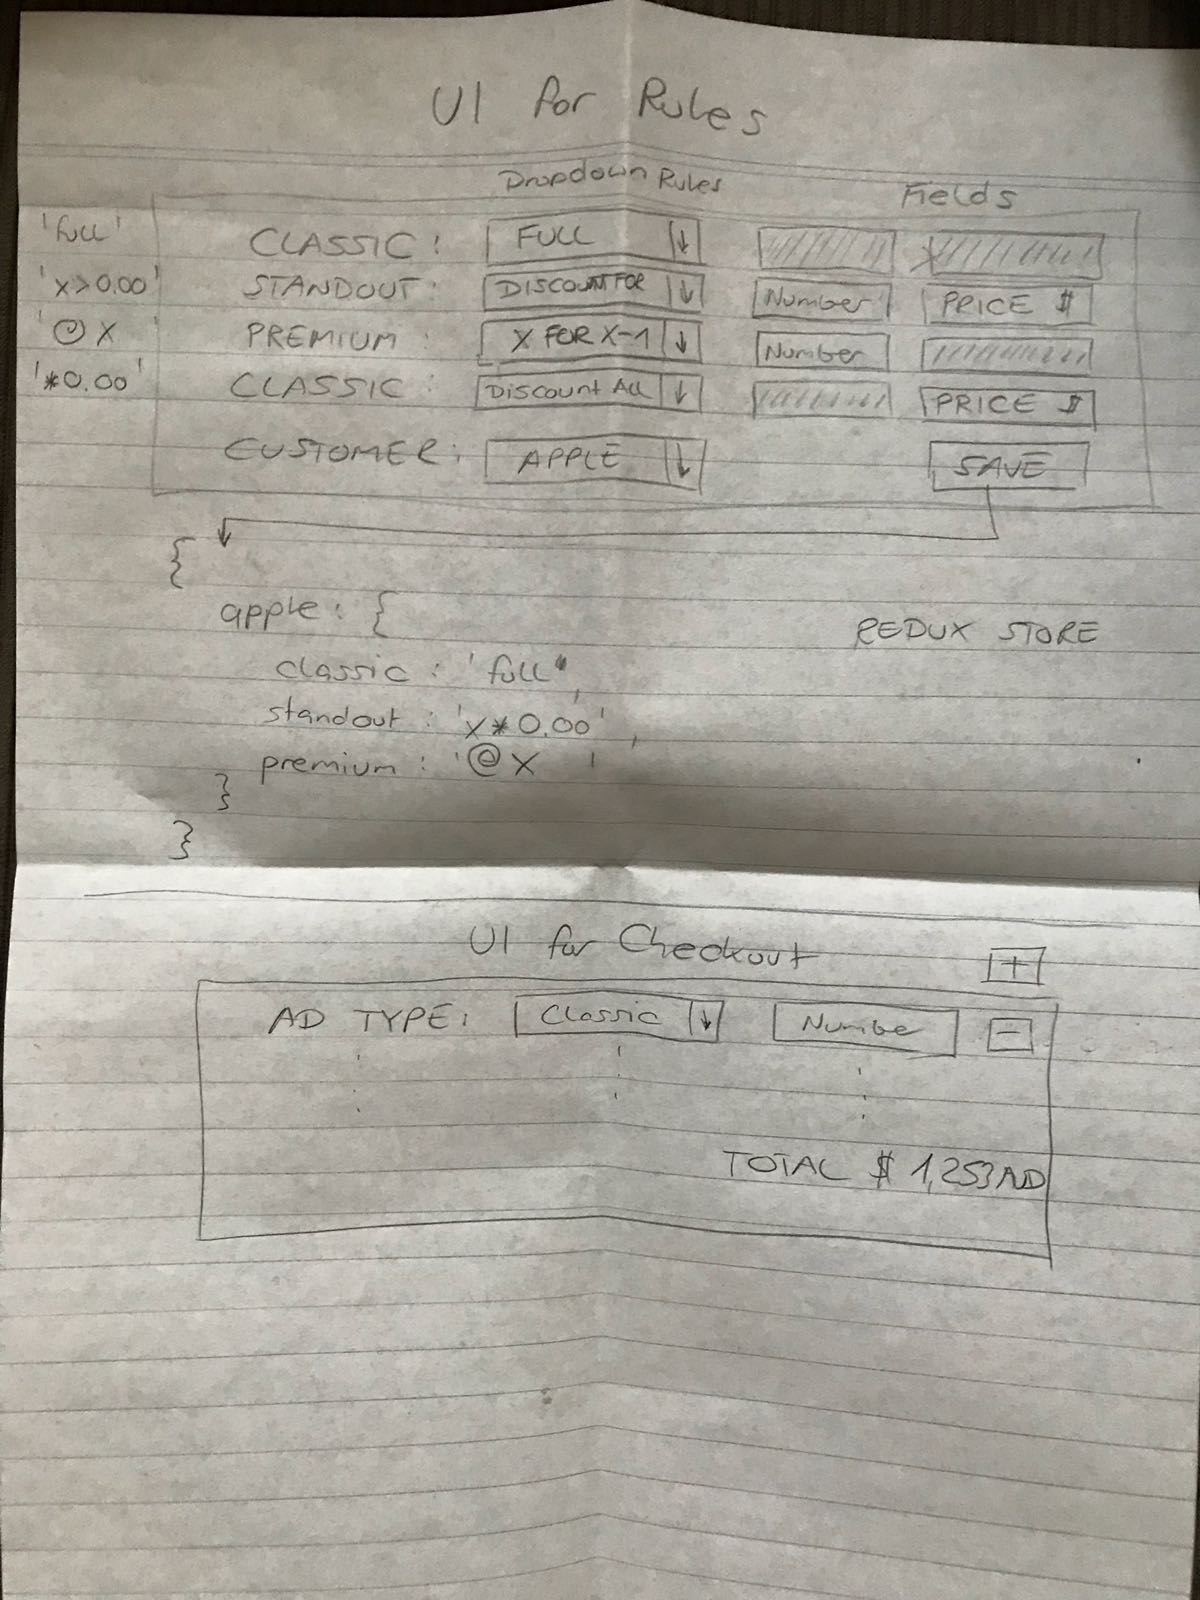 UI for Rules
Dropdown Rules Fields
'full' CLASSIC: FULL
'x>0.00' STANDOUT: DISCOUNT FOR Number PRICE $
'@X PREMIUM: X FOR X-1 Number
'*0.00' CLASSIC: DISCOUNT ALL PRICE $
CUSTOMER: APPLE SAVE
{
apple: {
REDUX STORE
classic: 'full',
standout: 'x*0.00',
premium: '@X '
}
}
UI for Checkout
+
AD TYPE: Classic Number -
TOTAL $ 1,253